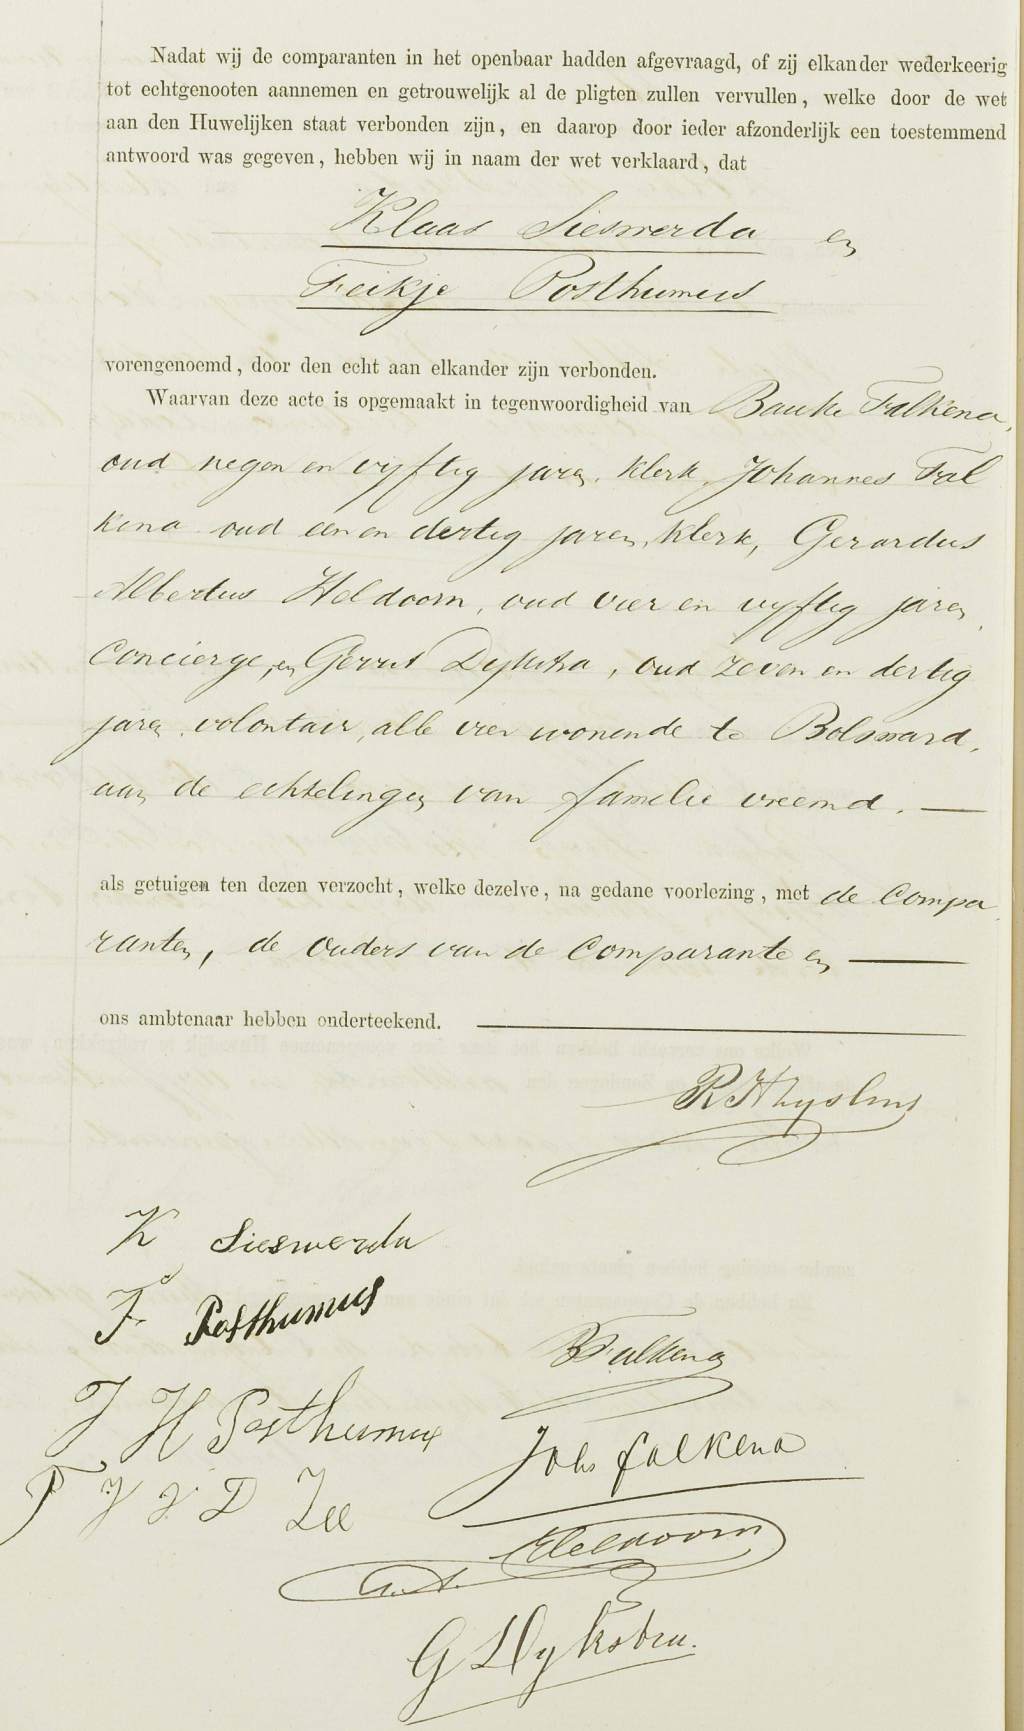 Nadat wij de comparanten in het openbaar hadden afgevraagd, of zij elkander wederkeerig
tot echtgenooten aannemen en getrouwelijk al de pligten zullen vervullen, welke door de wet
aan den Huwelijken staat verbonden zijn, en daarop door ieder afzonderlijk een toestemmend
antwoord was gegeven, hebben wij in naam der wet verklaard, dat
Klaas Sieswerda en
Feikje Posthumus
vorengenoemd, door den echt aan elkander zijn verbonden.
Waarvan deze acte is opgemaakt in tegenwoordigheid van Bauke Falkena,
oud negen en vyftig jaren, klerk, Johannes Fal
kena oud een en dertig jaren, klerk, Gerardus
Albertus Heldoorn, oud vier en vyftig jaren,
Concierge, en Gerrit Dykstra, oud zeven en dertig
jaren, volontair, alle vier wonende te Bolsward,
aan de echtelingen van familie vreemd. —
als getuigen ten dezen verzocht, welke dezelve, na gedane voorlezing, met de Compa
ranten, de ouders van de Comparante en —
ons ambtenaar hebben onderteekend. —
K Sieswerda
F. Posthumus
B Falkena
J H Posthumus
Johs Falkena
Zee
G. A. Heldoorn
G Dykstra.